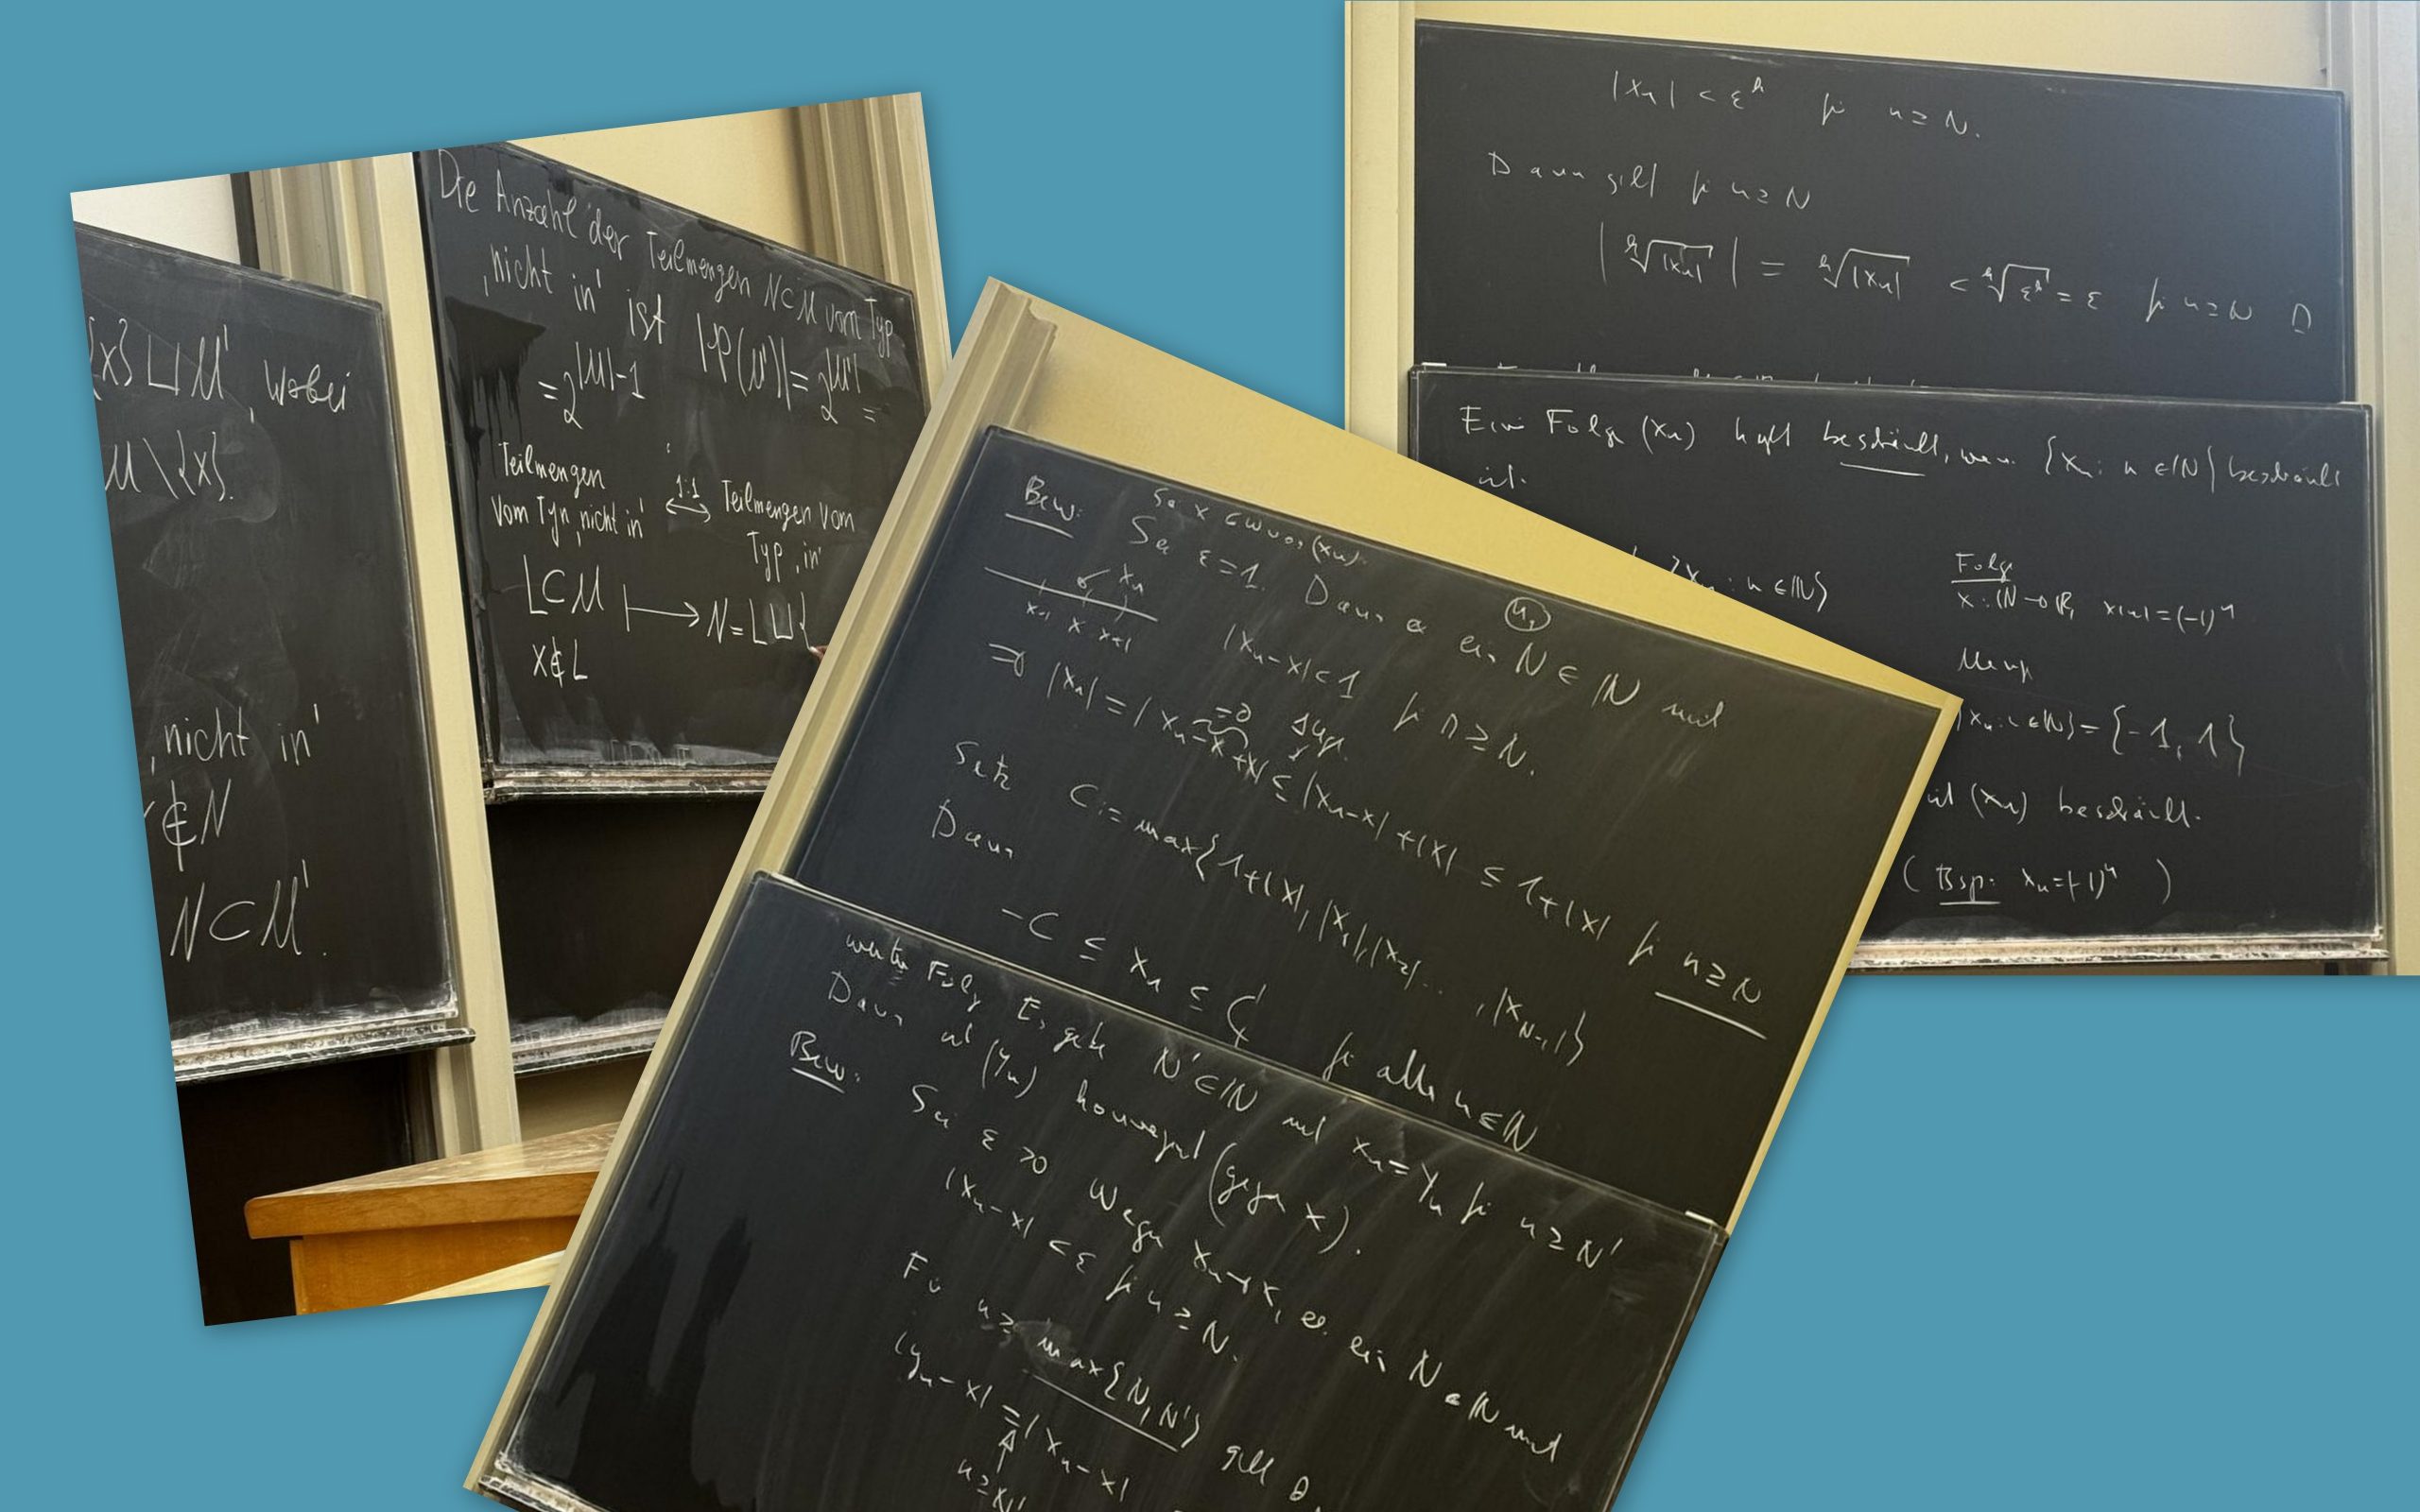 {x} ⊔ M', wobei
M \ {x}.
'nicht in'
∉ N
N ⊂ M'.
Die Anzahl der Teilmengen N⊂M vom Typ
'nicht in' ist |P(M')| = 2^|M'| =
= 2^|M|-1
Teilmengen
vom Typ 'nicht in' 1:1 ⟷ Teilmengen vom
Typ 'in'
L⊂M ⟼ N = L ⊔ {
x∉L
Bew: Sei x (xn).
Sei ε=1. Dann ex ein N ∈ ℕ mit
xn
x-1 x x+1
|xn-x| < 1 für n ≥ N.
=0 Δugl.
⇒ |xn| = |xn-x+x| ≤ |xn-x| + |x| ≤ 1+|x| für n≥N
Setze C := max{1+|x|, |x1|, |x2|, ..., |xN-1|}
Dann
-C ≤ xn ≤ C für alle n∈ℕ
weitere Folge Es gebe N' ∈ ℕ mit xn = yn für n ≥ N'
Dann ist (yn) konvergent (gegen x).
Bew: Sei ε > 0 Wegen xn→x, ex. ein N ∈ ℕ mit
|xn-x| < ε für n ≥ N.
Für n ≥ max{N, N'} gilt
|yn-x| = |xn-x|
n≥N'
|xn| < ε^k für n ≥ N.
Dann gilt für n ≥ N
| ᵏ√|xn| | = ᵏ√|xn| < ᵏ√ε^k = ε für n ≥ N □
Eine Folge (xn) heißt beschränkt, wenn {xn : n ∈ ℕ} beschränkt
ist.
{xn : n ∈ ℕ}
Folge
x : ℕ → ℝ, x(n) = (-1)^n
Menge
{xn : n ∈ ℕ} = {-1, 1}
ist (xn) beschränkt.
( Bsp: xn = (-1)^n )